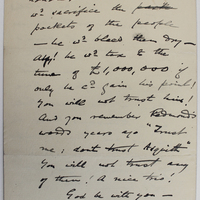 wd. sacrifice the
pockets of the people
— he wd. bleed them dry —
he wd. tax to the
tune of £1,000,000 if
only he cd. gain his point!
You will not trust him!
And you remember Redmond's
words years ago "Trust
me, don't trust Asquith"
You will not trust any
of them! A nice trio!
God be with you —